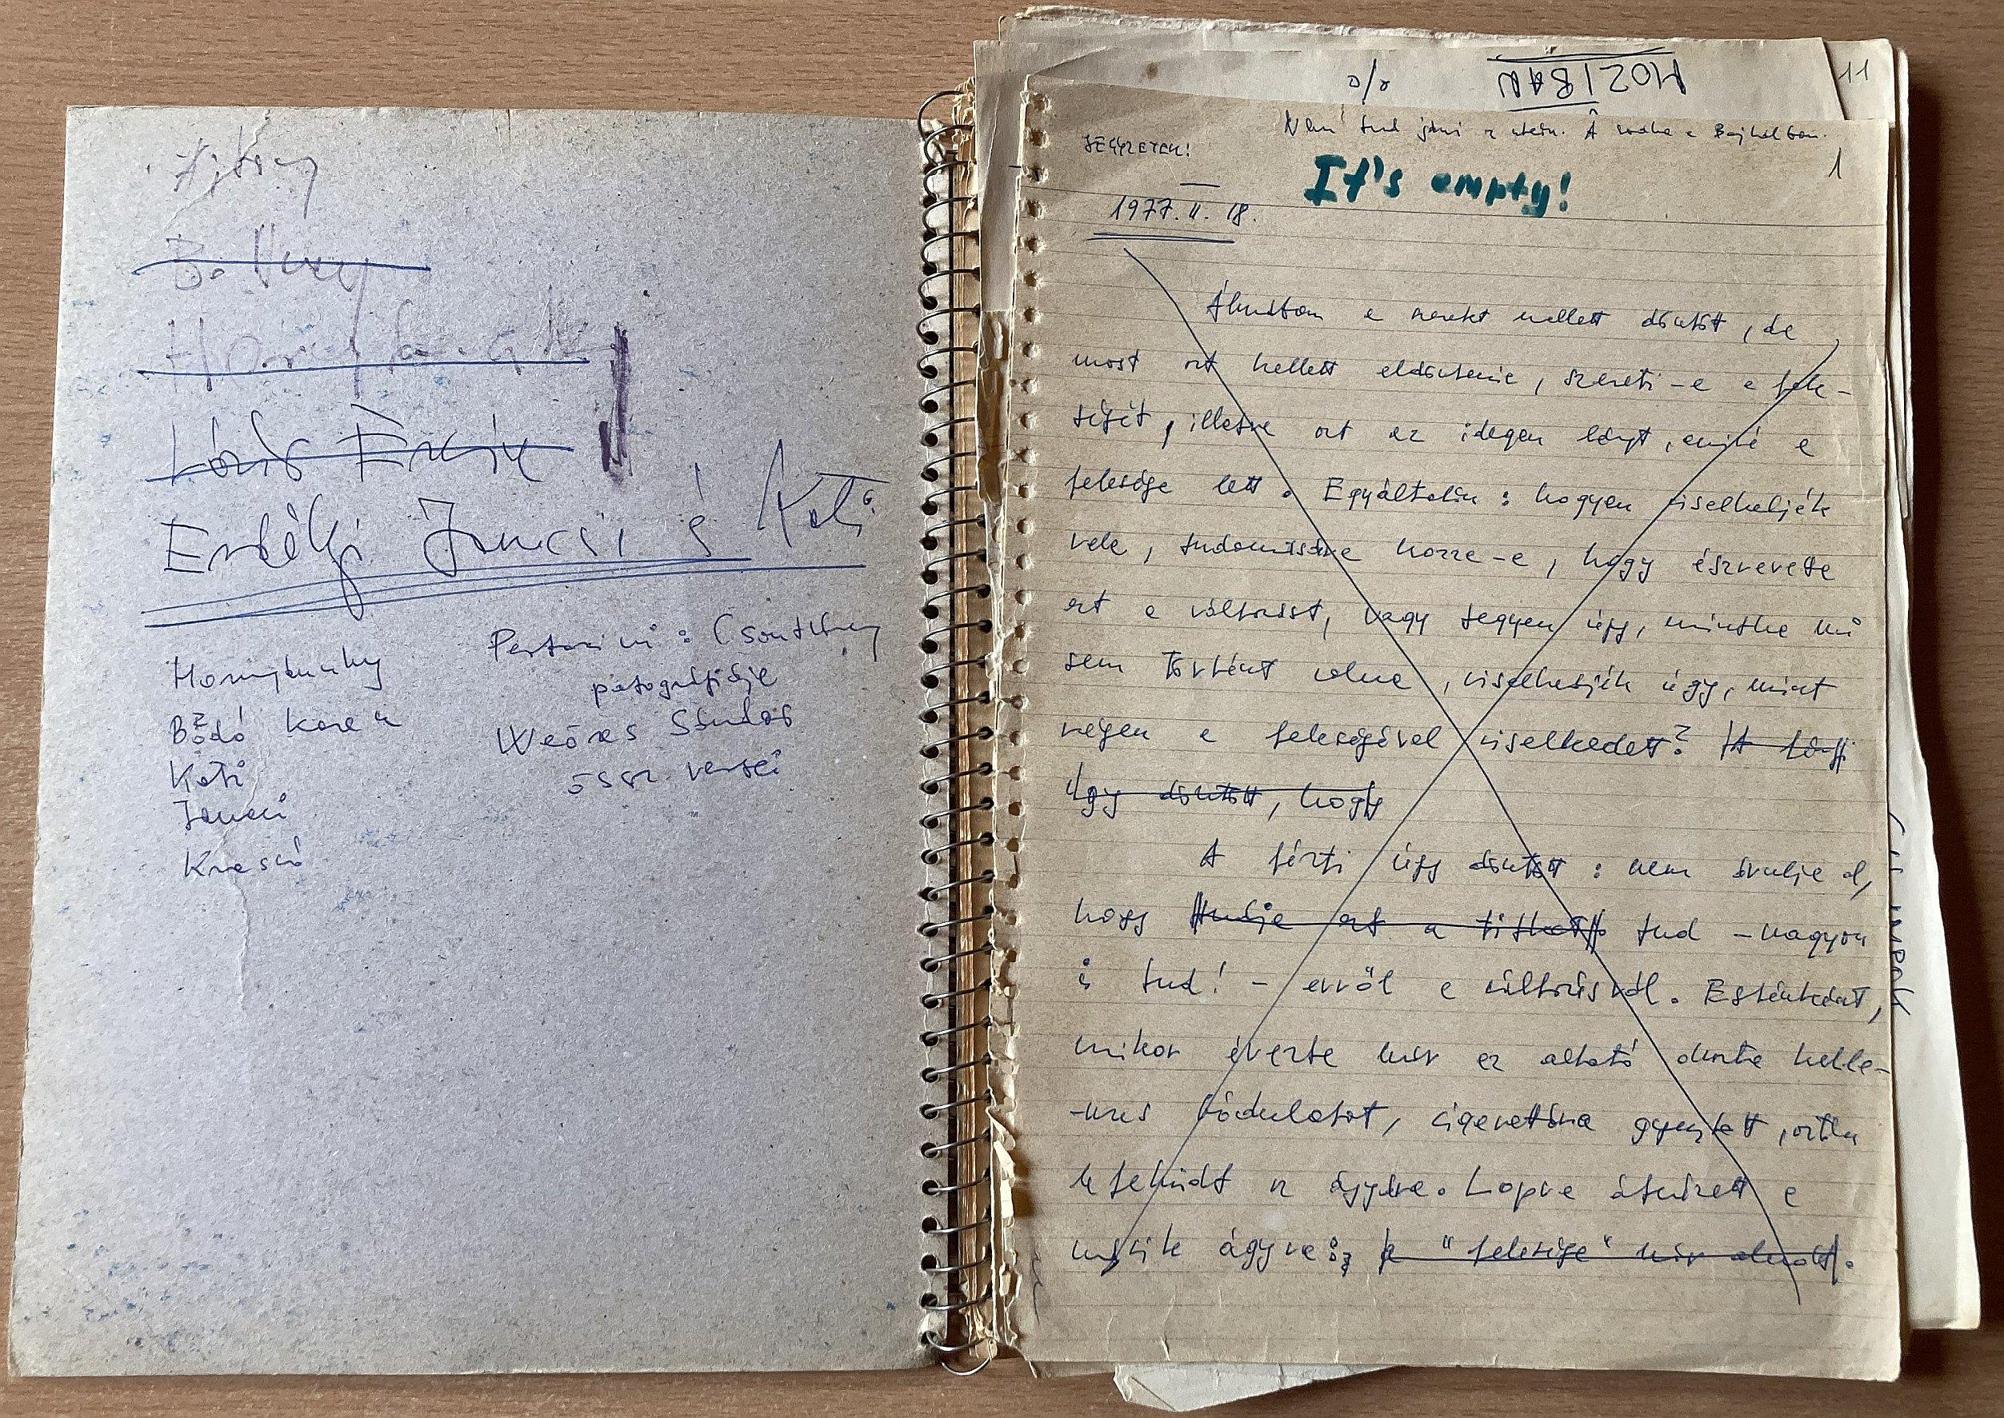 Erdélyi Jancsi s Kati
Hornyánszky
Bődő
Kati
Jancsi
Krassó
Pertorini: Csontváry
patográfiája
Weöres Sándor
össz versei
MOZIBAN
11
Nem tud járni
JEGYZETEK!
1
It's empty!
1977. II. 18.
Álmában e mellett döntött, de
most azt kellett eldöntenie, szereti-e a fele-
ségét, illetve azt az idegen lányt, amivé a
felesége lett. Egyáltalán: hogyan viselkedjék
vele, tudomására hozza-e, hogy észrevette
azt a változást, vagy tegyen úgy, mintha mi
sem történt volna, viselkedjék úgy, mint
régen a feleségével viselkedett? A férfi
úgy döntött, hogy
A férfi úgy döntött: nem árulja el,
hogy tudja azt a titkot. tud - nagyon
is tud! - erről a változásról. Esténként,
mikor érezte már az altató okozta kelle-
mes bódulatot, cigarettára gyujtott, aztán
lefeküdt az ágyára. Lopva átnézett a
másik ágyra; a "felesége" már aludt.